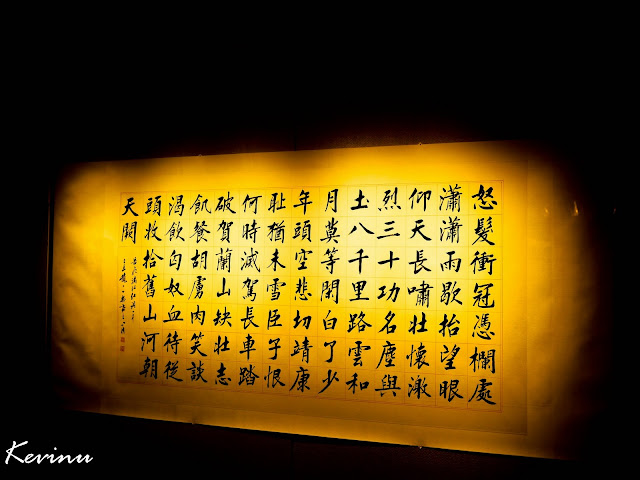 怒髮衝冠憑欄處
瀟瀟雨歇抬望眼
仰天長嘯壯懷激
烈三十功名塵與
土八千里路雲和
月莫等閑白了少
年頭空悲切靖康
耻猶未雪臣子恨
何時滅駕長車踏
破賀蘭山缺壯志
飢餐胡虜肉笑談
渴飲匈奴血待從
頭收拾舊山河朝
天闕
Kevinu